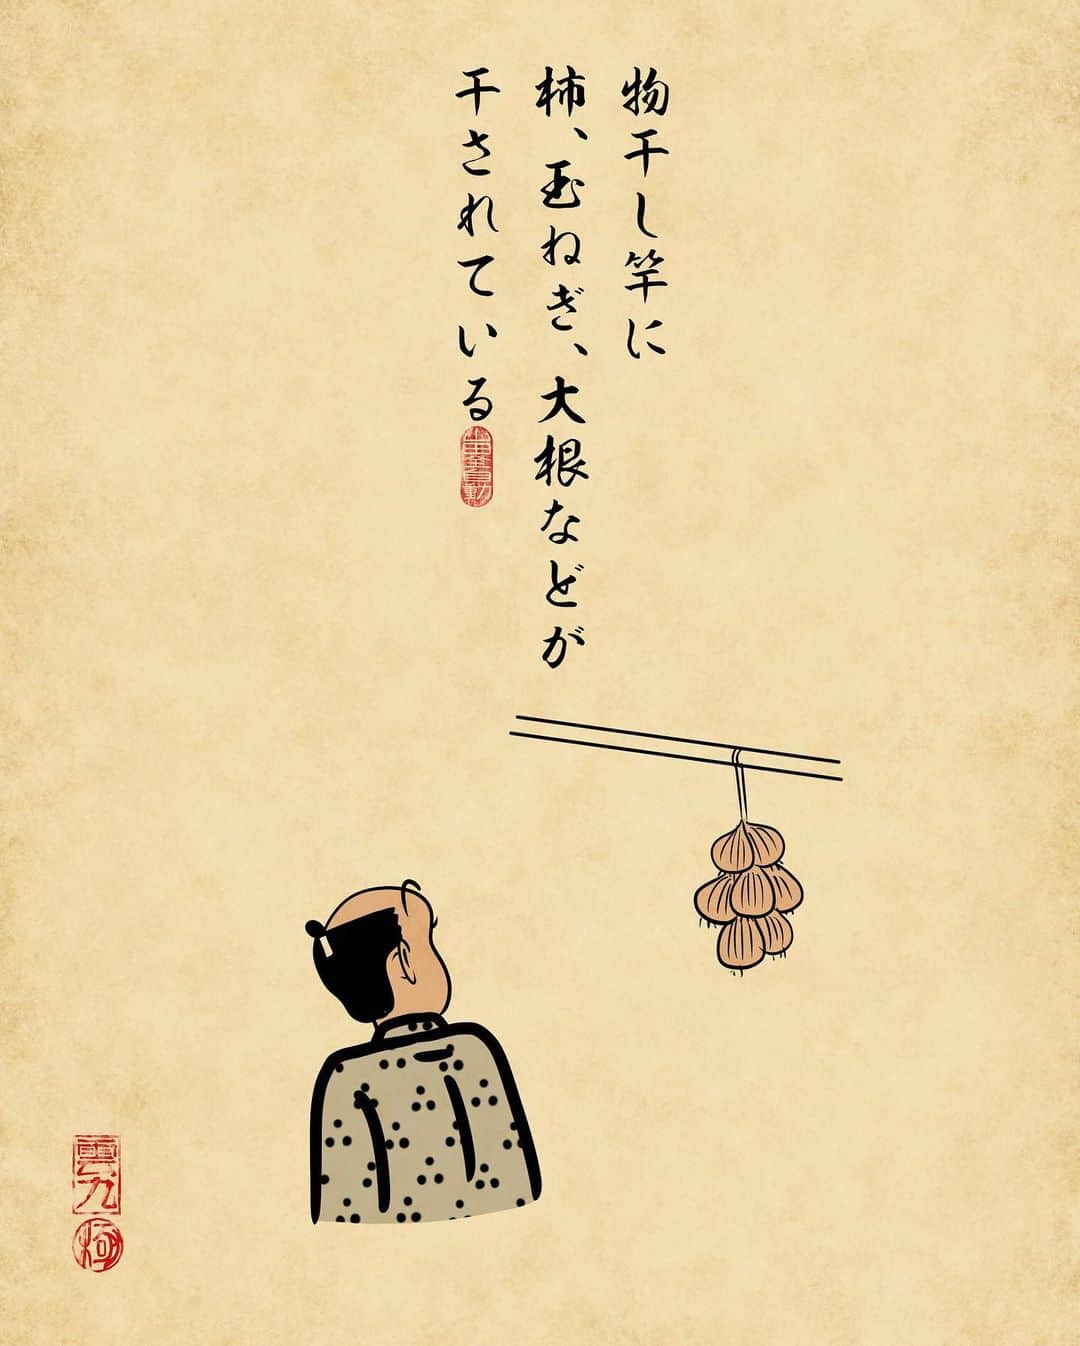 物干し竿に
柿、玉ねぎ、大根などが
干されている
雲九
極